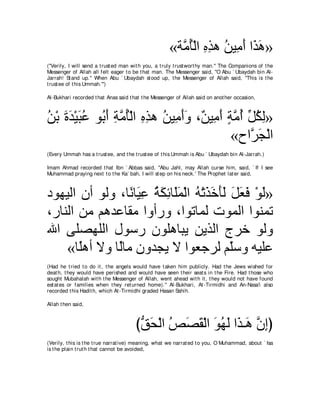 «هَذَا أَمِينُ هَذِهِ الْأُمَّة»
("Verily, I will send a trusted man with you, a truly trustworthy man." The Companions of the Messenger of Allah all felt eager to be that man. The Messenger said, "O Abu `Ubaydah bin Al-Jarrah! Stand up." When Abu `Ubaydah stood up, the Messenger of Allah said, "This is the trustee of this Ummah.")
Al-Bukhari recorded that Anas said that the Messenger of Allah said on another occasion,
«لِكُلِّ أُمَّةٍ أَمِينٌ، وَأَمِينُ هَذِهِ الْأُمَّةِ أَبُو عُبَيْدَةَ بْنُ الْجَرَّاح»
(Every Ummah has a trustee, and the trustee of this Ummah is Abu `Ubaydah bin Al-Jarrah.)
Imam Ahmad recorded that Ibn `Abbas said, "Abu Jahl, may Allah curse him, said, `If I see Muhammad praying next to the Ka`bah, I will step on his neck.' The Prophet later said,
«لَوْ فَعَلَ لَأَخَذَتْهُ الْمَلَائِكَةُ عِيَانًا، ولو أن اليهود تمنوا الموت لماتوا، ورأوا مقاعدهم من النار، ولو خرج الذين يباهلون رسول اللهصلى الله عليه وسلّم لرجعوا لا يجدون مالًا ولا أهلًا»
(Had he tried to do it, the angels would have taken him publicly. Had the Jews wished for death, they would have perished and would have seen their seats in the Fire. Had those who sought Mubahalah with the Messenger of Allah, went ahead with it, they would not have found estates or families when they returned home)." Al-Bukhari, At-Tirmidhi and An-Nasa'i also recorded this Hadith, which At-Tirmidhi graded Hasan Sahih.
Allah then said,
(إِنَّ هَـذَا لَهُوَ الْقَصَصُ الْحَقُّ)
(Verily, this is the true narrative) meaning, what we narrated to you, O Muhammad, about `Isa is the plain truth that cannot be avoided,